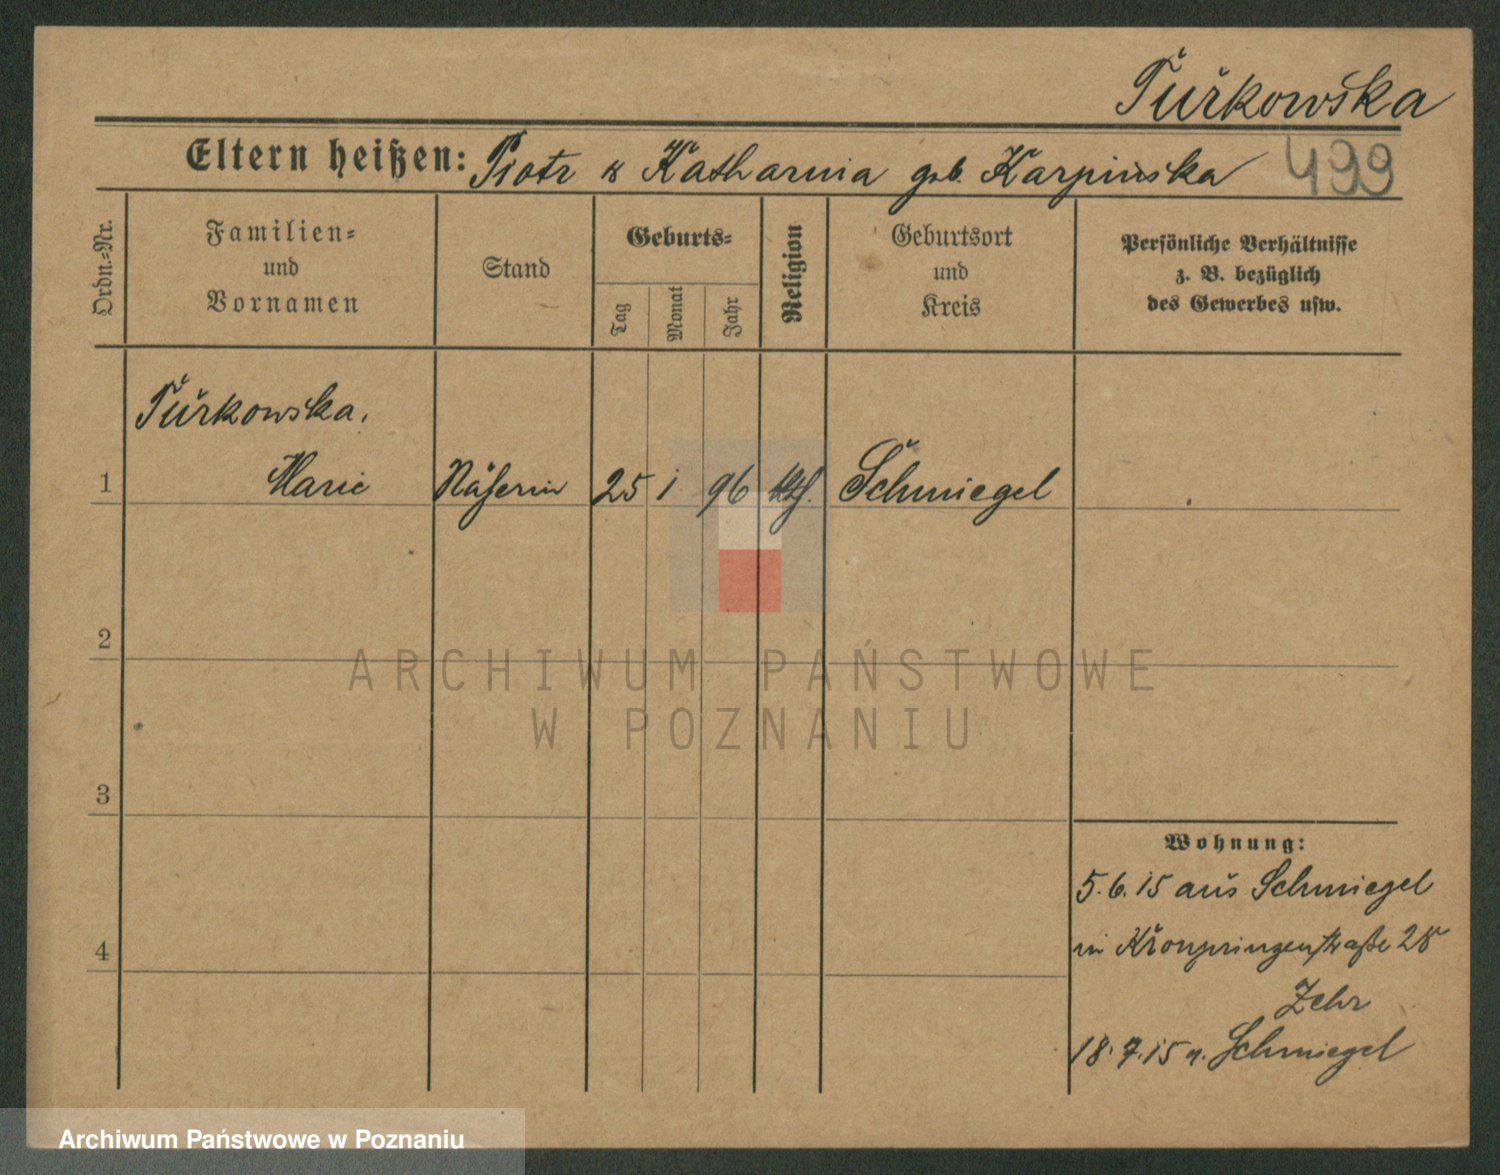 Turkowska
Eltern heißen: Piotr u Katharina geb. Karpinska 499
Ordn.=Nr.
Familien=
und
Vornamen
Stand
Geburts=
Tag
Monat
Jahr
Religion
Geburtsort
und
Kreis
Persönliche Verhältnisse
z. B. bezüglich
des Gewerbes usw.
Turkowska.
1 Marie Näherin 25 1 96 kth. Schmiegel
2
ARCHIWUM PAŃSTWOWE
W POZNANIU
3
Wohnung:
5.6.15 aus Schmiegel
4
in Kronprinzenstraße 28
Zehr
18.7.15 n. Schmiegel
Archiwum Państwowe w Poznaniu